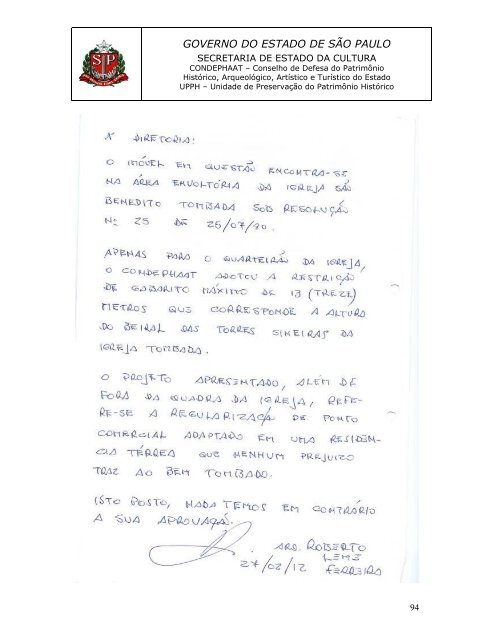 GOVERNO DO ESTADO DE SÃO PAULO
SECRETARIA DE ESTADO DA CULTURA
CONDEPHAAT – Conselho de Defesa do Patrimônio
Histórico, Arqueológico, Artístico e Turístico do Estado
UPPH – Unidade de Preservação do Patrimônio Histórico
SP
X DIRETORIA:
O IMÓVEL EM QUESTÃO ENCONTRA-SE
NA ÁREA ENVOLTÓRIA DA IGREJA SÃO
BENEDITO TOMBADA SOB RESOLUÇÃO
Nº 25 DE 25/07/70.
APENAS PARA O QUARTEIRÃO DA IGREJA,
O CONDEPHAAT ADOTOU A RESTRIÇÃO
DE GABARITO MÁXIMO DE 13 (TREZE)
METROS QUE CORRESPONDE A ALTURA
DO BEIRAL DAS TORRES SINEIRAS DA
IGREJA TOMBADA.
O PROJETO APRESENTADO, ALÉM DE
FORA DA QUADRA DA IGREJA, REFE-
RE-SE A REGULARIZAÇÃ DE PONTO
COMERCIAL ADAPTADO EM UMA RESIDÊN-
CIA TÉRREA QUE NENHUM PREJUIZO
TRAZ AO BEM TOMBADO.
ISTO POSTO, NADA TEMOS EM CONTRÁRIO
A SUA APROVAÇÃ.
ARQ. ROBERTO
LEME
27/02/12 FERREIRA
94